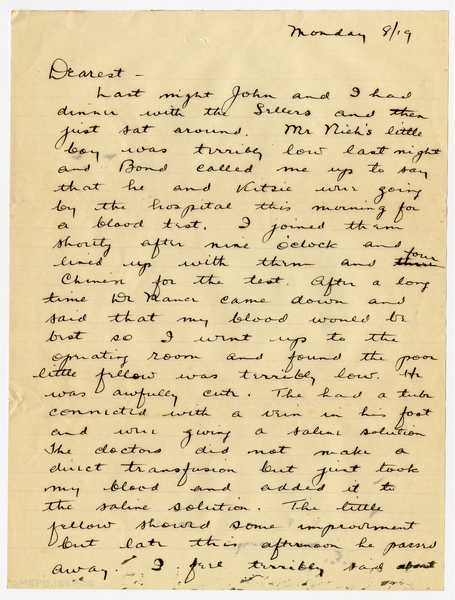 Monday 8/19
Dearest -
Last night John and I had
dinner with the Sellers and then
just sat around. Mr Rich's little
boy was terribly low last night
and Bond called me up to say
that he and Kitsie were going
by the hospital this morning for
a blood test. I joined them
shortly after nine o'clock and
lined up with them and four
Chinese for the test. After a long
time Dr Nance came down and
said that my blood would be
best so I went up to the
operating room and found the poor
little fellow was terribly low. He
was awfully cute. The had a tube
connected with a vein in his foot
and were giving a saline solution
The doctors did not make a
direct transfusion but just took
my blood and added it to
the saline solution. The little
fellow showed some improvement
but late this afternoon he passed
away. I feel terribly sad about